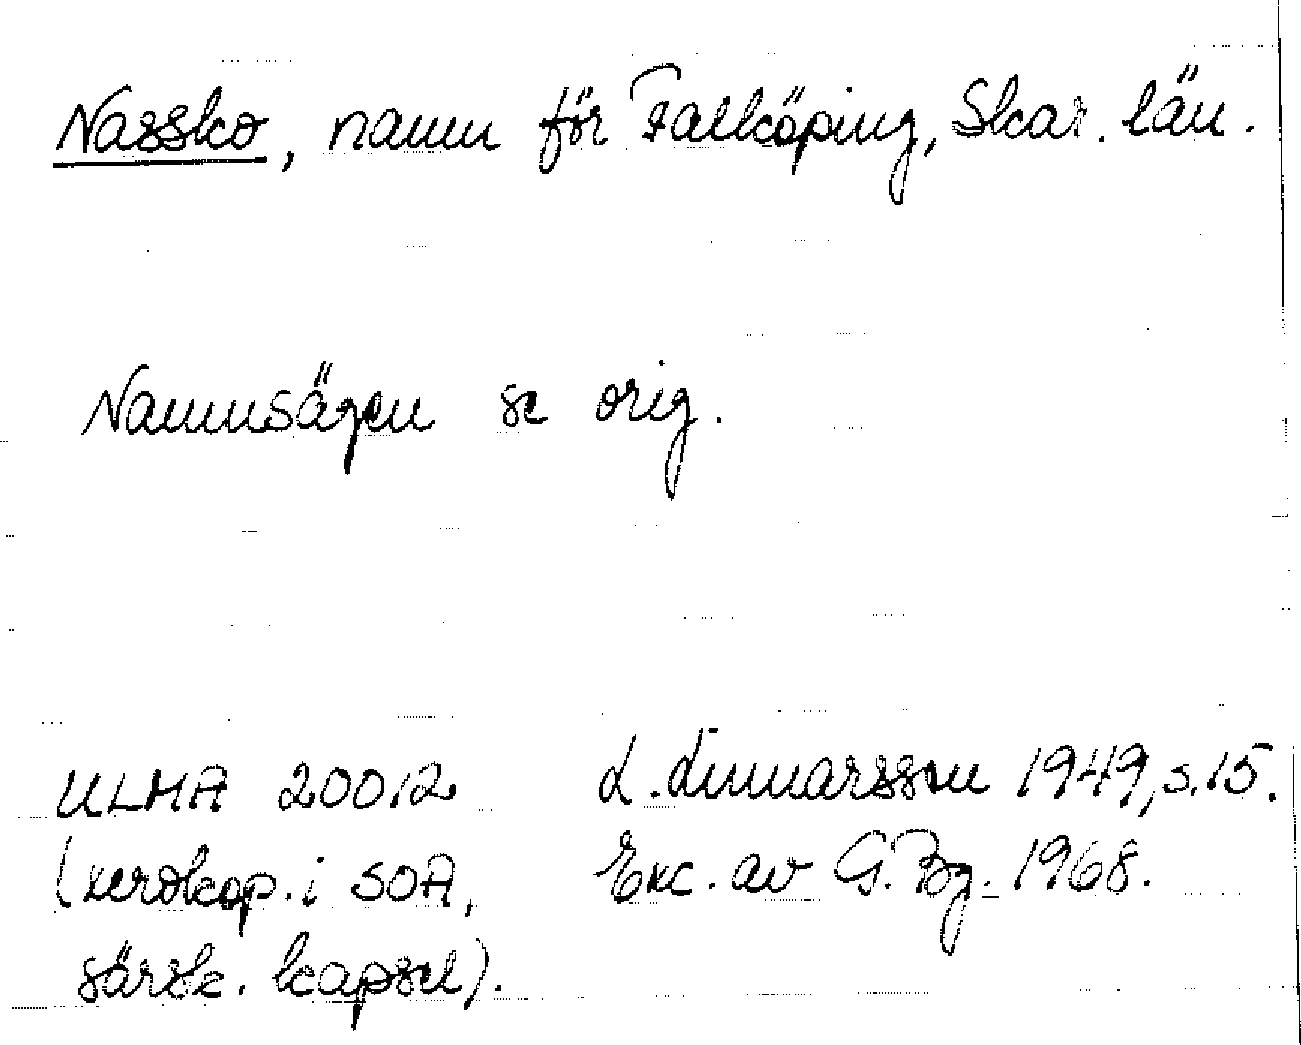 Nassko, namn för Falköping, Skar. län.
Namnsägen se orig.
ULMA 20012
(xerokop. i SOA,
särsk. kapsel).
L. Linnarsson 1949, s. 15.
Exc. av G. Bg. 1968.